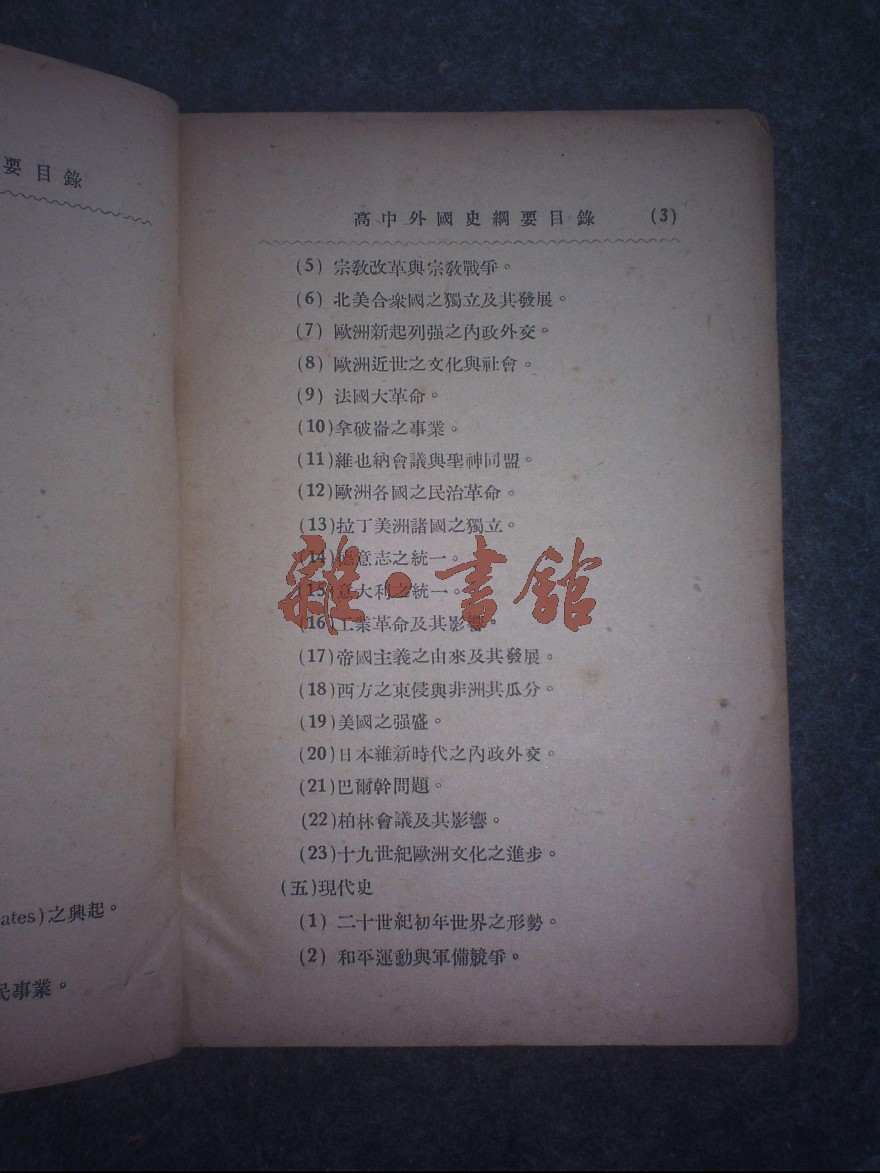 要目錄
ates)之興起。
民事業。
高中外國史綱要目錄 (3)
(5) 宗敎改革與宗敎戰爭。
(6) 北美合衆國之獨立及其發展。
(7) 歐洲新起列强之內政外交。
(8) 歐洲近世之文化與社會。
(9) 法國大革命。
(10)拿破崙之事業。
(11)維也納會議與聖神同盟。
(12)歐洲各國之民治革命。
(13)拉丁美洲諸國之獨立。
(14)德意志之統一。
(15)意大利之統一。
(16)工業革命及其影響。
(17)帝國主義之由來及其發展。
(18)西方之東侵與非洲共瓜分。
(19)美國之强盛。
(20)日本維新時代之內政外交。
(21)巴爾幹問題。
(22)柏林會議及其影響。
(23)十九世紀歐洲文化之進步。
(五)現代史
(1) 二十世紀初年世界之形勢。
(2) 和平運動與軍備競爭。
雜·書館